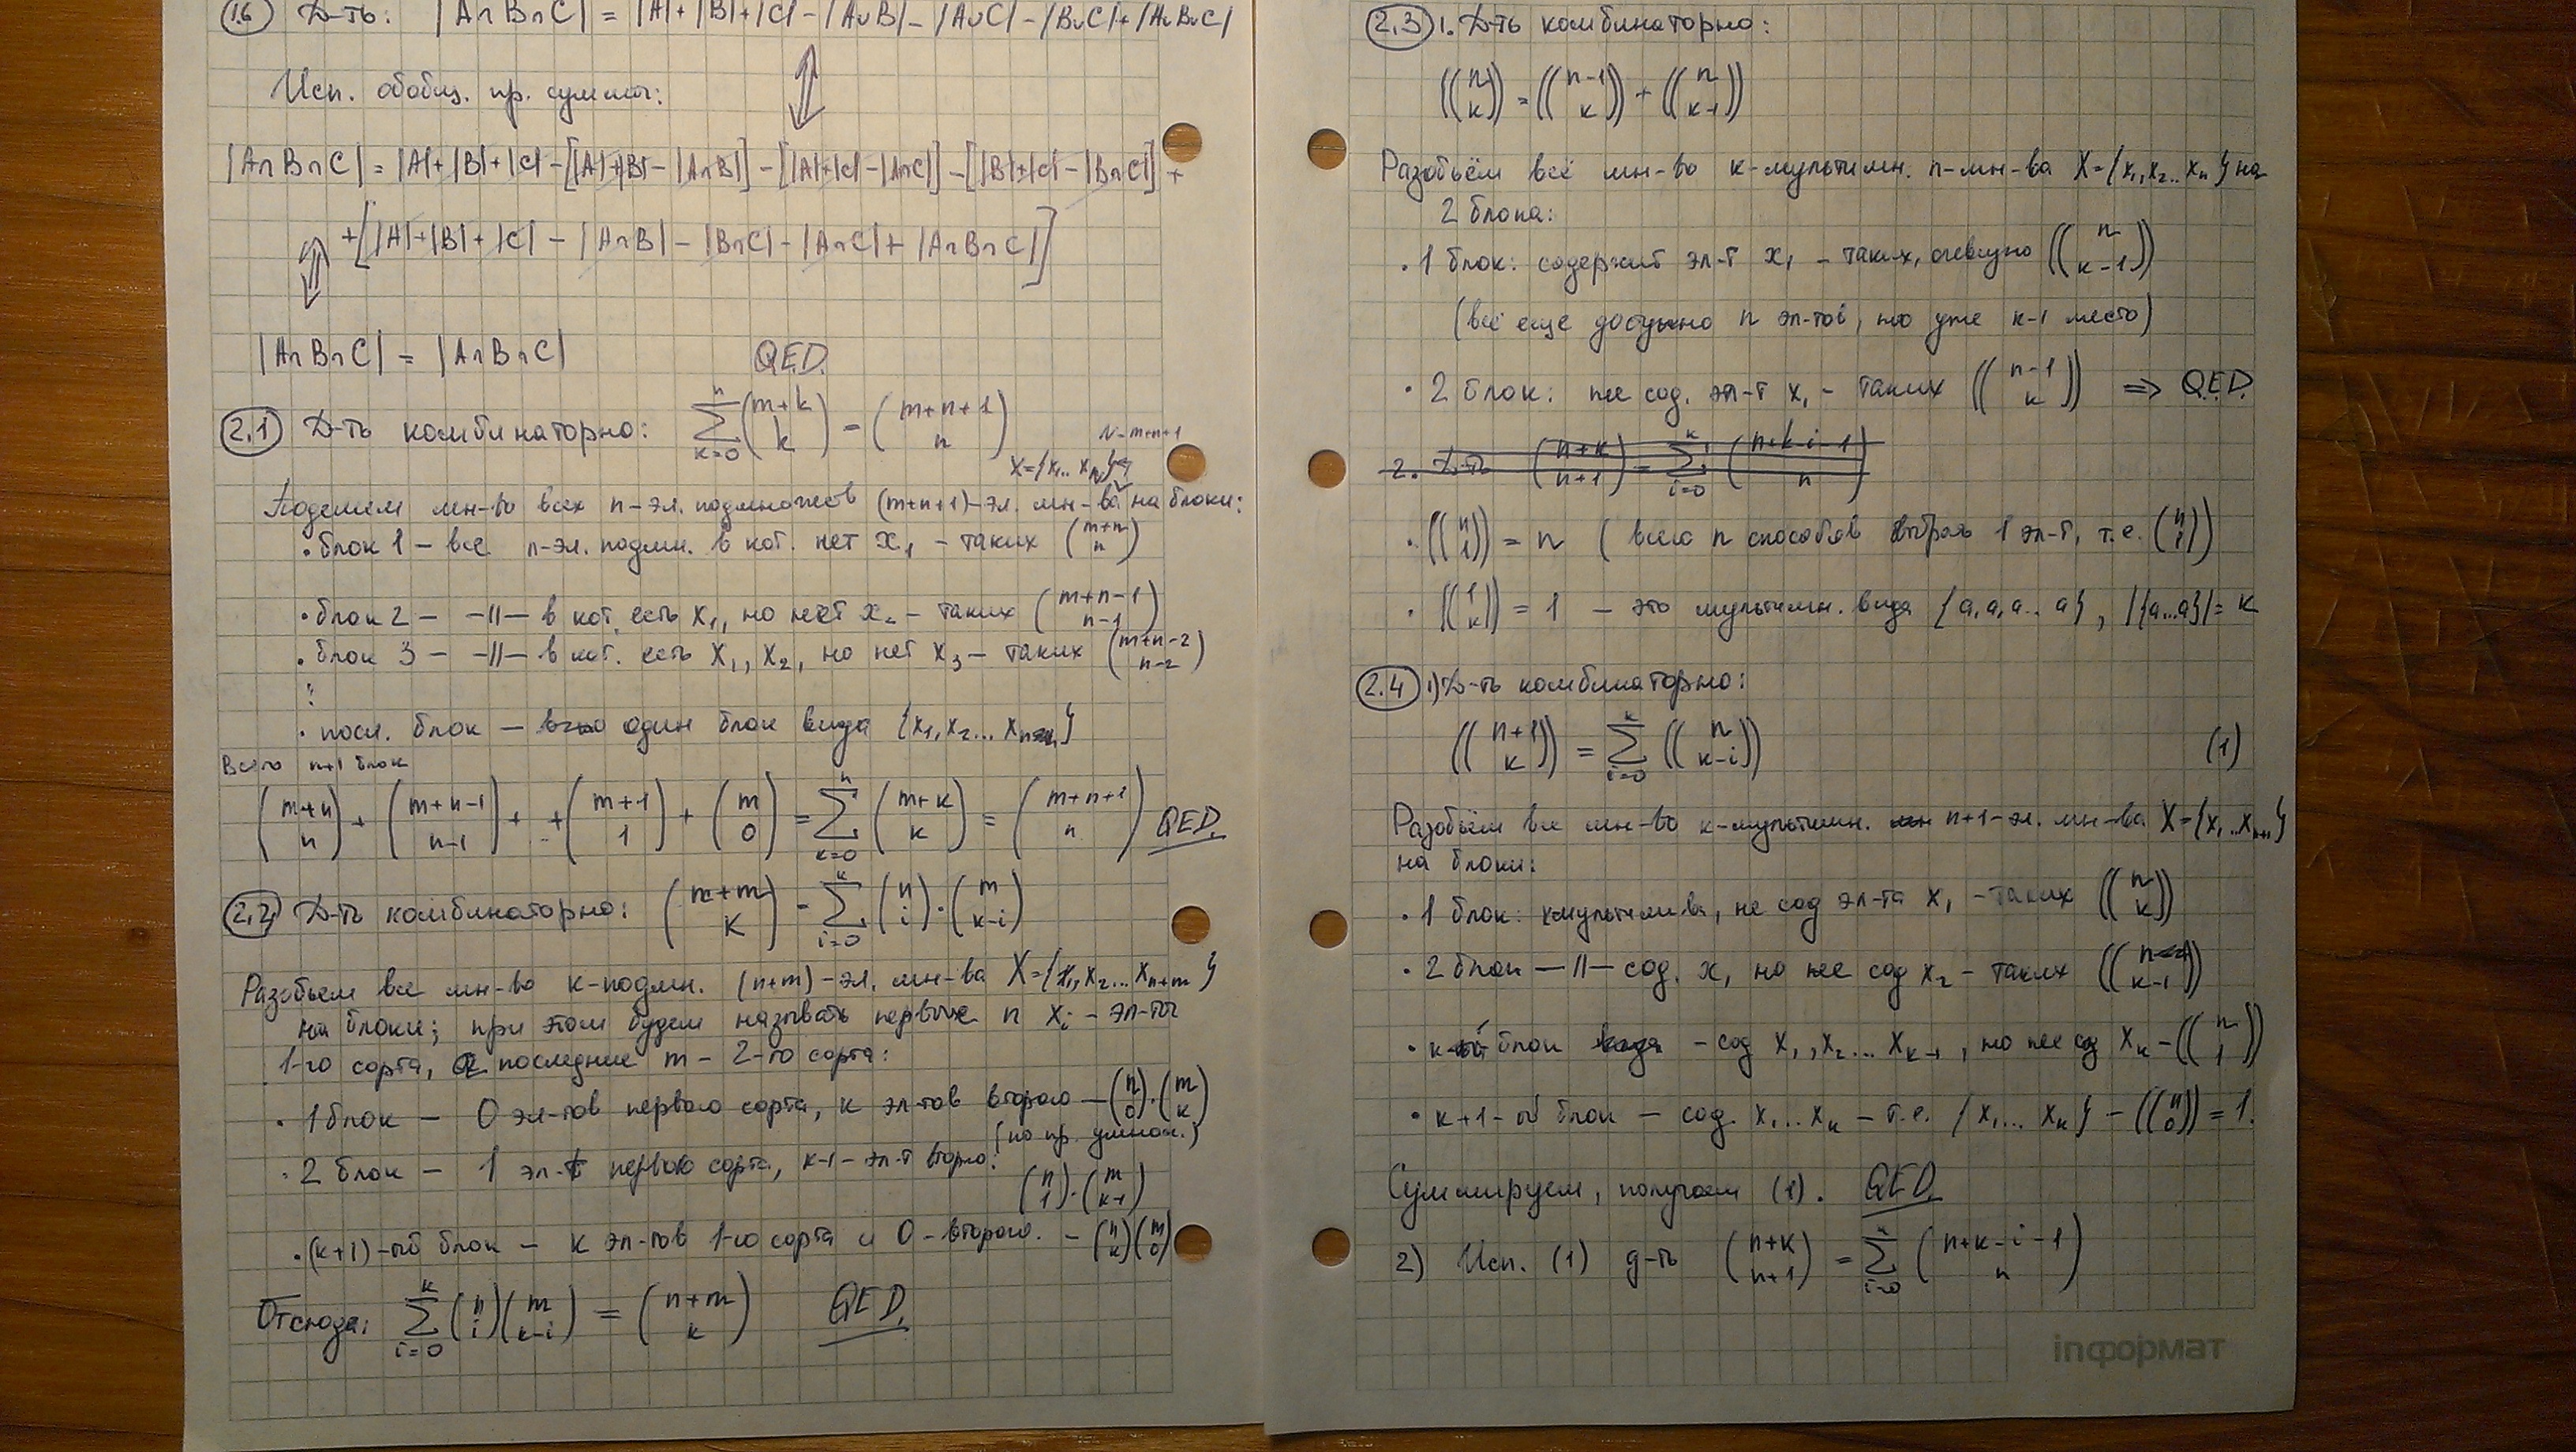 1.6 Д-ть: |A∩B∩C| = |A|+|B|+|C|-|A∪B|-|A∪C|-|B∪C|+|A∪B∪C|
⇕
Исп. обобщ. пр. суммы:
|A∩B∩C| = |A|+|B|+|C|-[|A|+|B|-|A∩B|]-[|A|+|C|-|A∩C|]-[|B|+|C|-|B∩C|]+
+[|A|+|B|+|C|-|A∩B|-|B∩C|-|A∩C|+|A∩B∩C|]
⇕
|A∩B∩C| = |A∩B∩C| QED.
2.1 Д-ть комбинаторно: \sum_{k=0}^{n} \binom{m+k}{k} = \binom{m+n+1}{n}
N=m+n+1
X={x₁...x_N}
Поделим мн-во всех n-эл. подмножеств (m+n+1)-эл. мн-ва на блоки:
• блок 1 – все n-эл. подмн. в кот. нет x₁ – таких \binom{m+n}{n}
• блок 2 – –||– в кот. есть x₁, но нет x₂ – таких \binom{m+n-1}{n-1}
• блок 3 – –||– в кот. есть x₁, x₂, но нет x₃ – таких \binom{m+n-2}{n-2}
⋮
• посл. блок – один блок вида {x₁,x₂...x_n}
Всего n+1 блок
\binom{m+n}{n} + \binom{m+n-1}{n-1} + .. + \binom{m+1}{1} + \binom{m}{0} = \sum_{k=0}^{n} \binom{m+k}{k} = \binom{m+n+1}{n} QED.
2.2 Д-ть комбинаторно: \binom{m+m}{k} = \sum_{i=0}^{k} \binom{n}{i}·\binom{m}{k-i}
Разобьем все мн-во k-подмн. (n+m)-эл. мн-ва X={x₁,x₂...x_{n+m}}
на блоки; при этом будем называть первые n x_i – эл-ты
1-го сорта, а последние m – 2-го сорта:
• 1 блок – 0 эл-тов первого сорта, k эл-тов второго – \binom{n}{0}·\binom{m}{k}
(по пр. умнож.)
• 2 блок – 1 эл-т первого сорта, k-1 – эл-т второго: \binom{n}{1}·\binom{m}{k-1}
• (k+1)-ый блок – k эл-тов 1-го сорта и 0 – второго. – \binom{n}{k}\binom{m}{0}
Отсюда: \sum_{i=0}^{k} \binom{n}{i}\binom{m}{k-i} = \binom{n+m}{k} QED.
2.3 1. Д-ть комбинаторно:
((n k)) = ((n-1 k)) + ((n k-1))
Разобьём всё мн-во k-мультимн. n-мн-ва X={x₁,x₂..x_n} на
2 блока:
• 1 блок: содержит эл-т x₁ – таких, очевидно ((n k-1))
(всё еще доступно n эл-тов, но уже k-1 место)
• 2 блок: не сод. эл-т x₁ – таких ((n-1 k)) ⇒ QED.
2. Д-ть \binom{n+k}{n+1} = \sum_{i=0}^{k} \binom{n+k-i-1}{n}
• ((n 1)) = n (всего n способов выбрать 1 эл-т, т.е. \binom{n}{1})
• ((1 k)) = 1 – это мультимн. вида {a,a,a..a}, |{a...a}|=k
2.4 1) Д-ть комбинаторно:
((n+1 k)) = \sum_{i=0}^{k} ((n k-i)) (1)
Разобьём все мн-во k-мультимн. n+1-эл. мн-ва X={x₁..x_{n+1}}
на блоки:
• 1 блок: k-мультимн-ва, не сод эл-та x₁ – таких ((n k))
• 2 блок –||– сод. x₁ но не сод x₂ – таких ((n k-1))
• k-ый блок – сод x₁,x₂...x_{k-1}, но не сод x_k – ((n 1))
• k+1-ый блок – сод. x₁...x_k – т.е. {x₁...x_k} – ((n 0)) = 1.
Суммируем, получаем (1). QED.
2) Исп. (1) д-ть \binom{n+k}{n+1} = \sum_{i=0}^{k} \binom{n+k-i-1}{n}
inформат